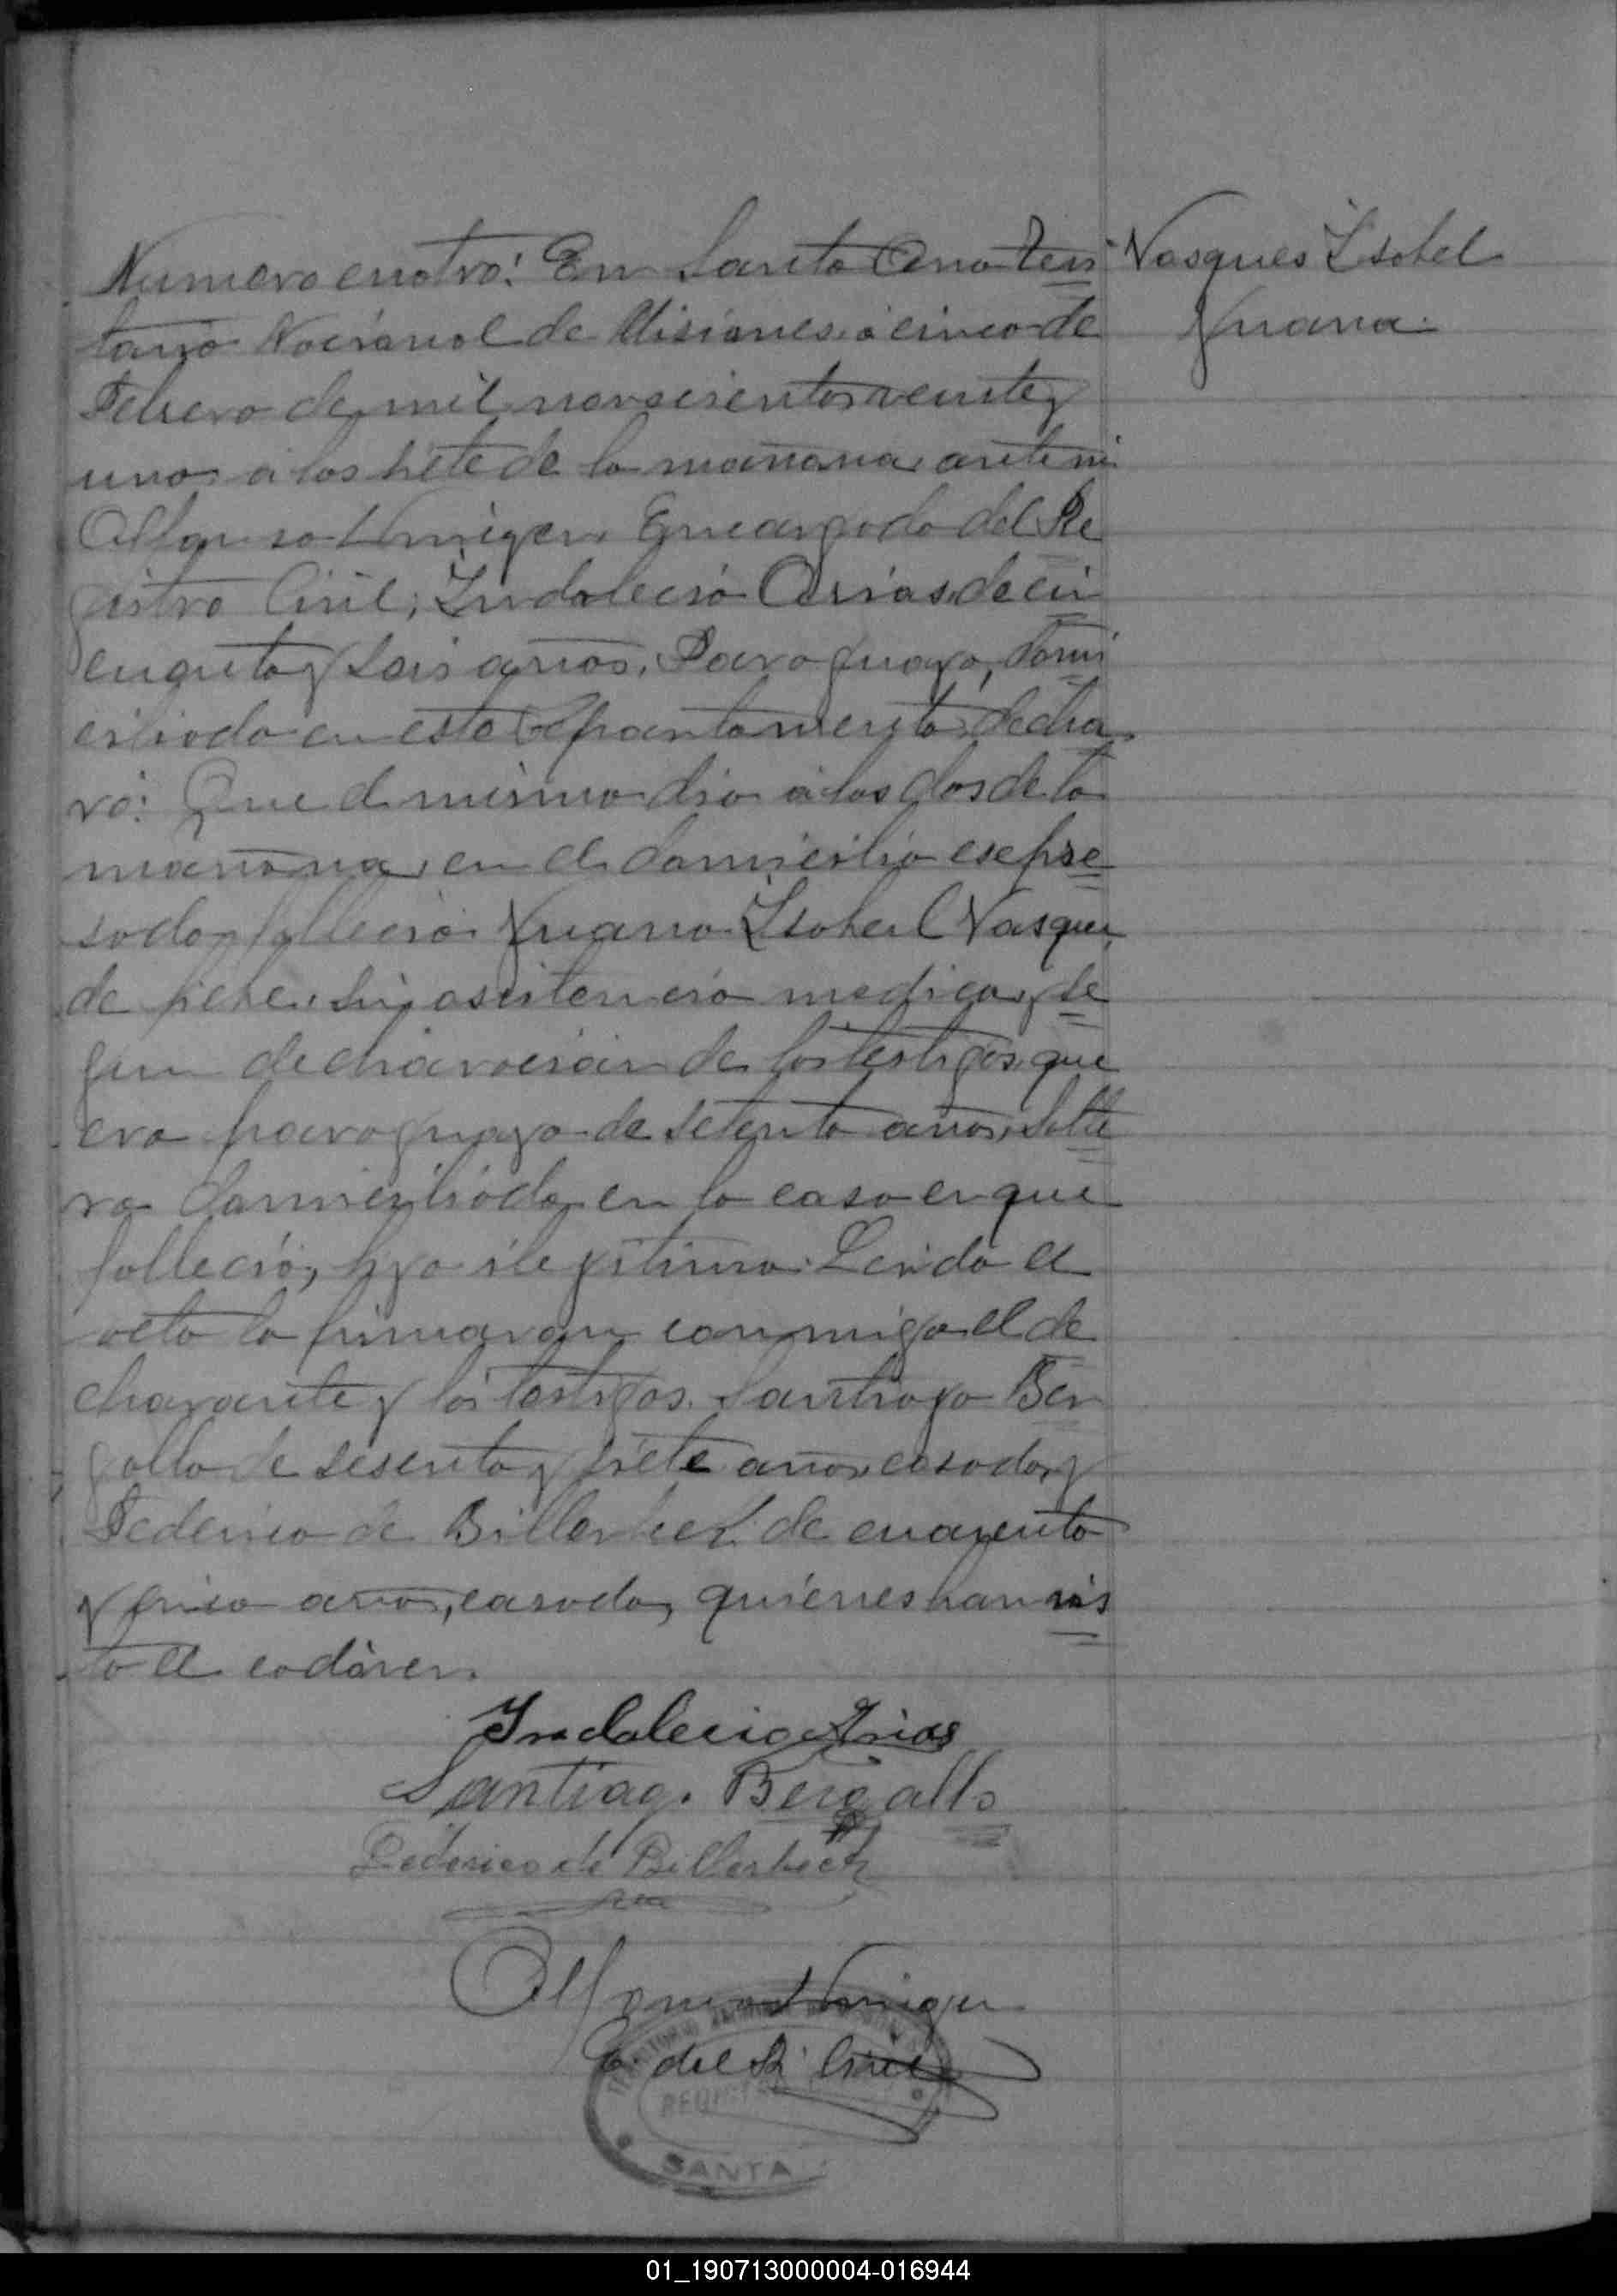 Numero cuatro: En Santa Ana Terri
torio Nacional de Misiones á cinco de
Febrero de mil novecientos veinte y
uno á las siete de la mañana ante mi
Alfonso Encargado del Re
gistro Civil; Indalecio Arias de cin
cuenta y seis años, Paraguayo, domi
ciliado en este Departamento decla
ró: Que el mismo dia á las dos de la
mañana, en el domicilio espre
sado, falleció Juana Isabel Vasques
de fiebre, sin asistencia medica, se
gun declaración de los testigos, que
era paraguaya de setenta años, solte
ra domiciliada en la casa en que
falleció, hija ilegitima. Leida el
acta la firmaron conmigo el de
clarante y los testigos. Santiago Ber
gallo de sesenta y siete años, casado, y
Federico de Billerbeck de cuarenta
y cinco años, casado, quienes han vis
to el cadáver.
Vasques Isabel
Juana
Indalecio Arias
Santiago Bergallo
Federico de Billerbeck
Alfonso
E. del R. Civil
REGISTRO
SANTA
01_190713000004-016944